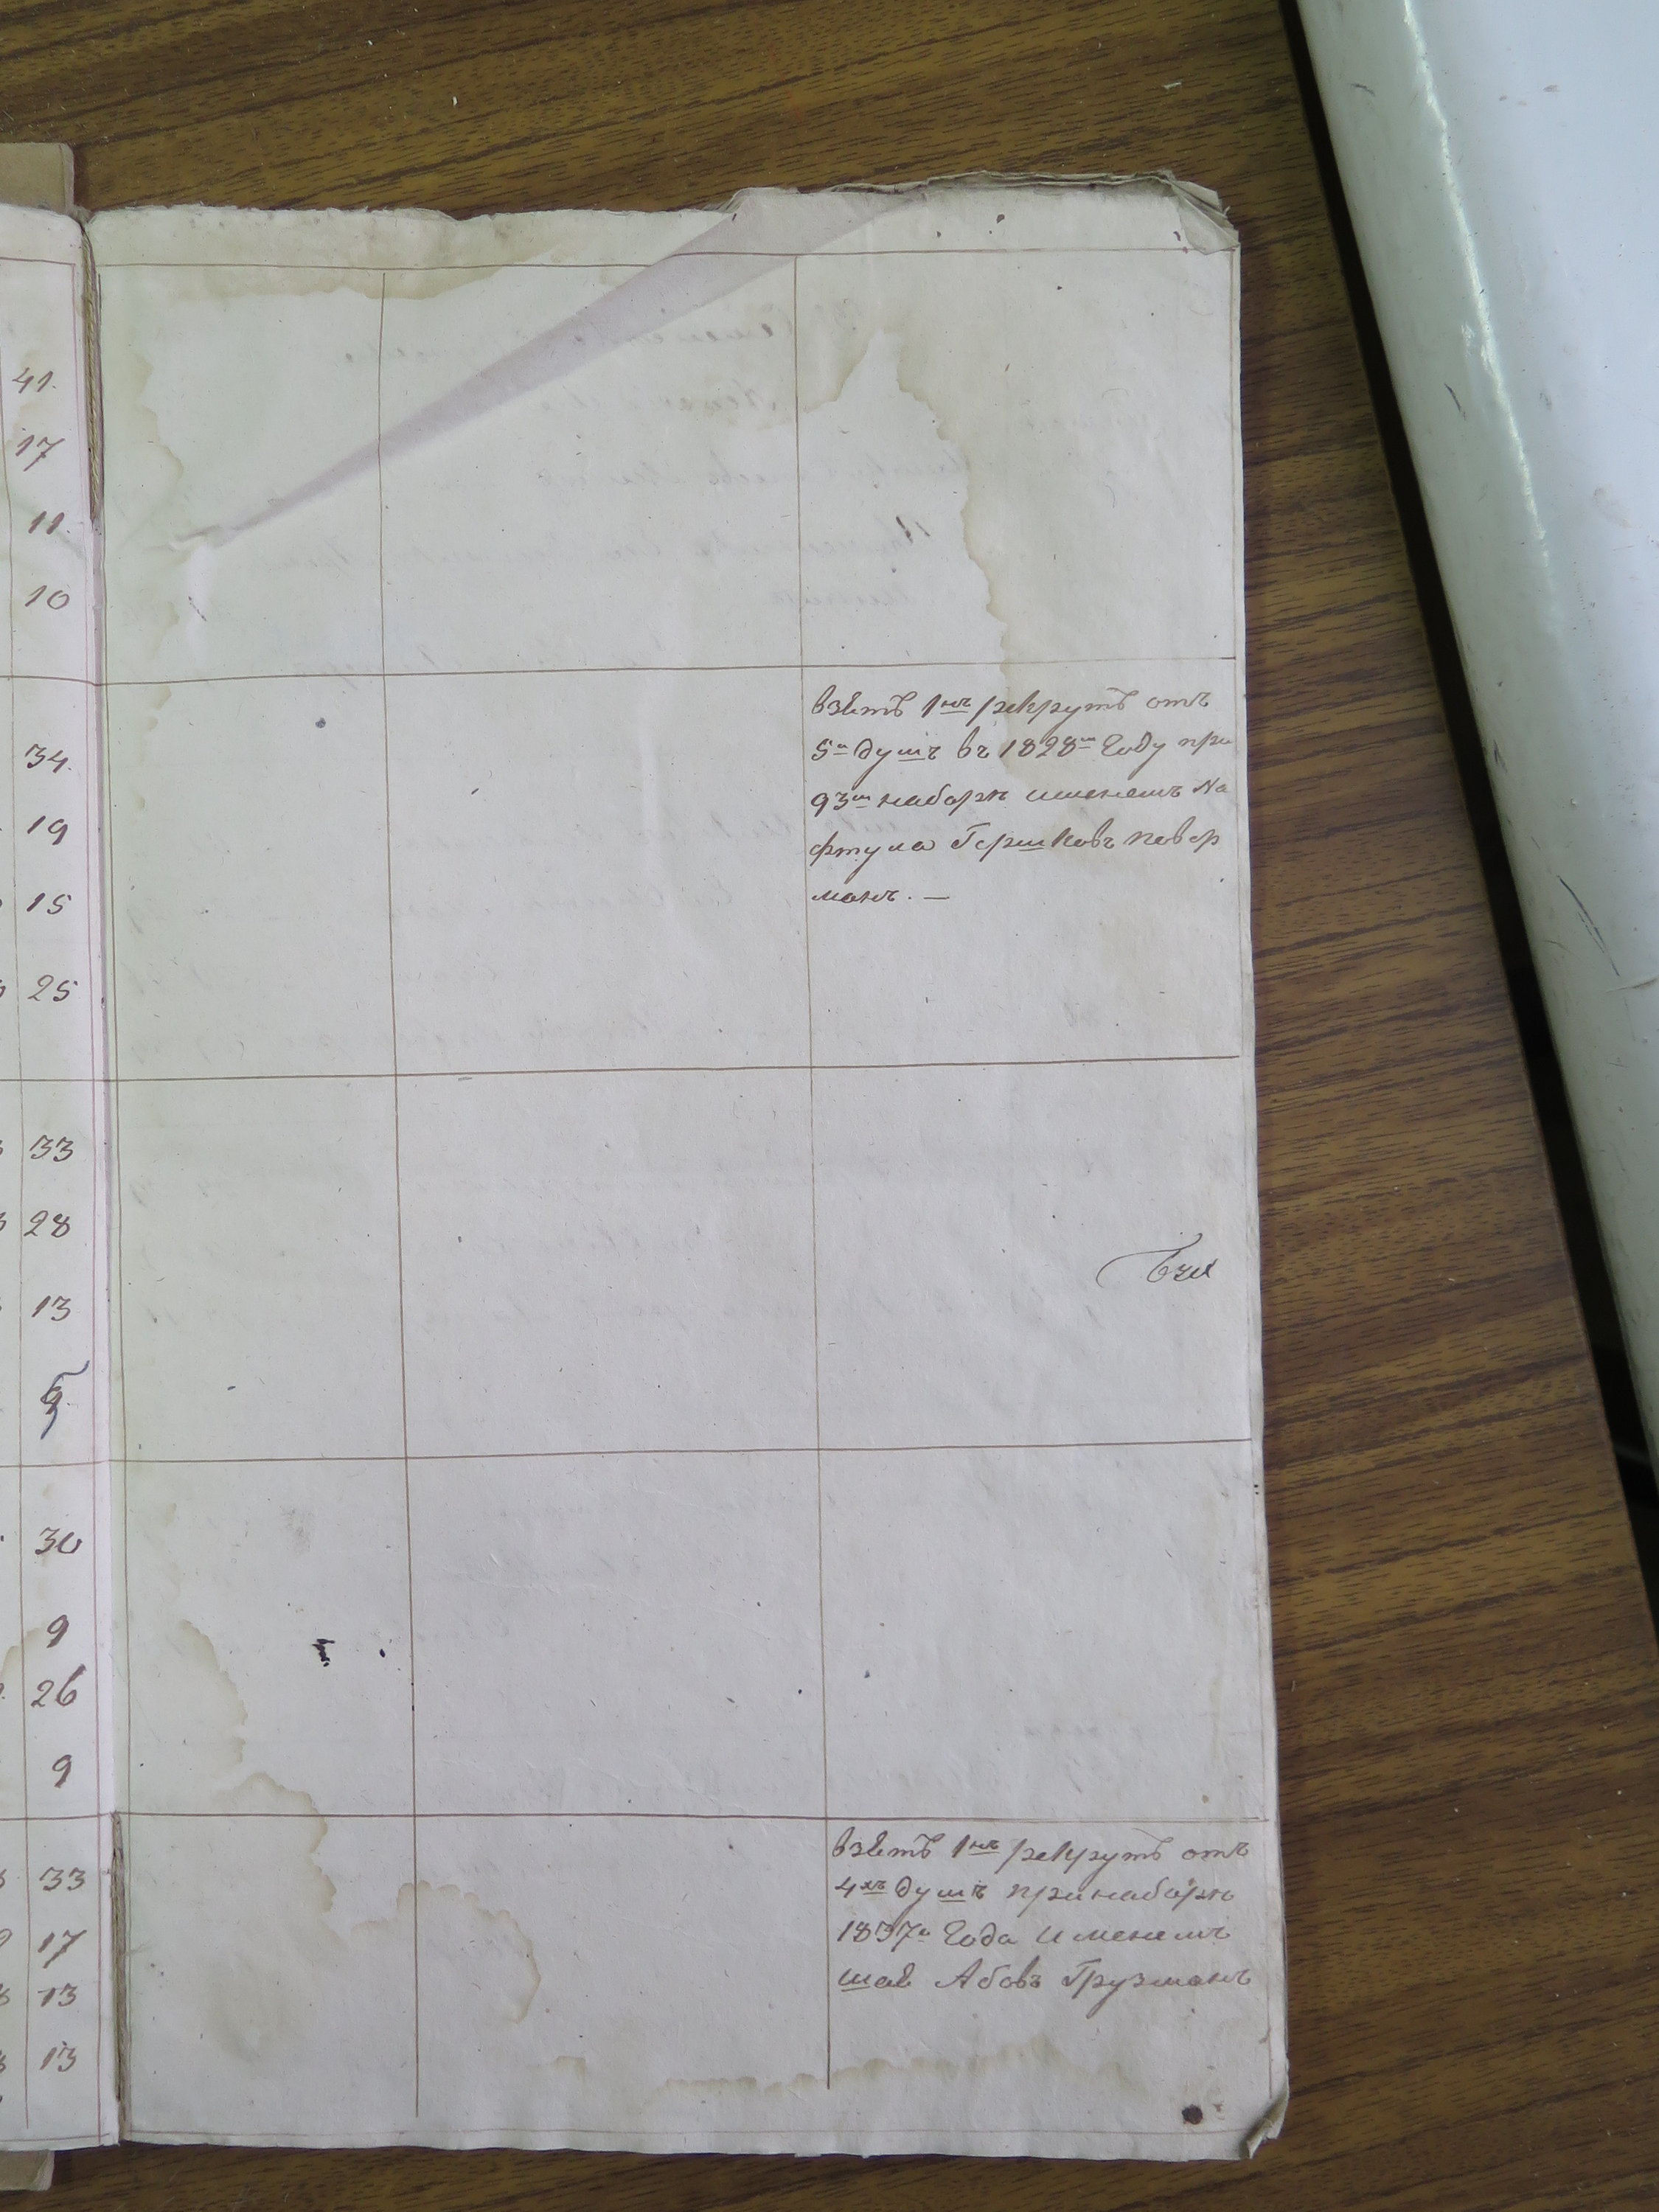 41.
17
11.
10
34.
19
15
25
33
28
13
9
30
9
26
9
33
17
13
13
взятъ 1нъ рекрутъ отъ
5и душъ въ 1828м году при
93м наборѣ именемъ На
фтула Гершковъ
манъ. —
взятъ 1нъ рекрутъ отъ
4хъ душъ при наборѣ
1837а года именемъ
Абовъ Грузманъ